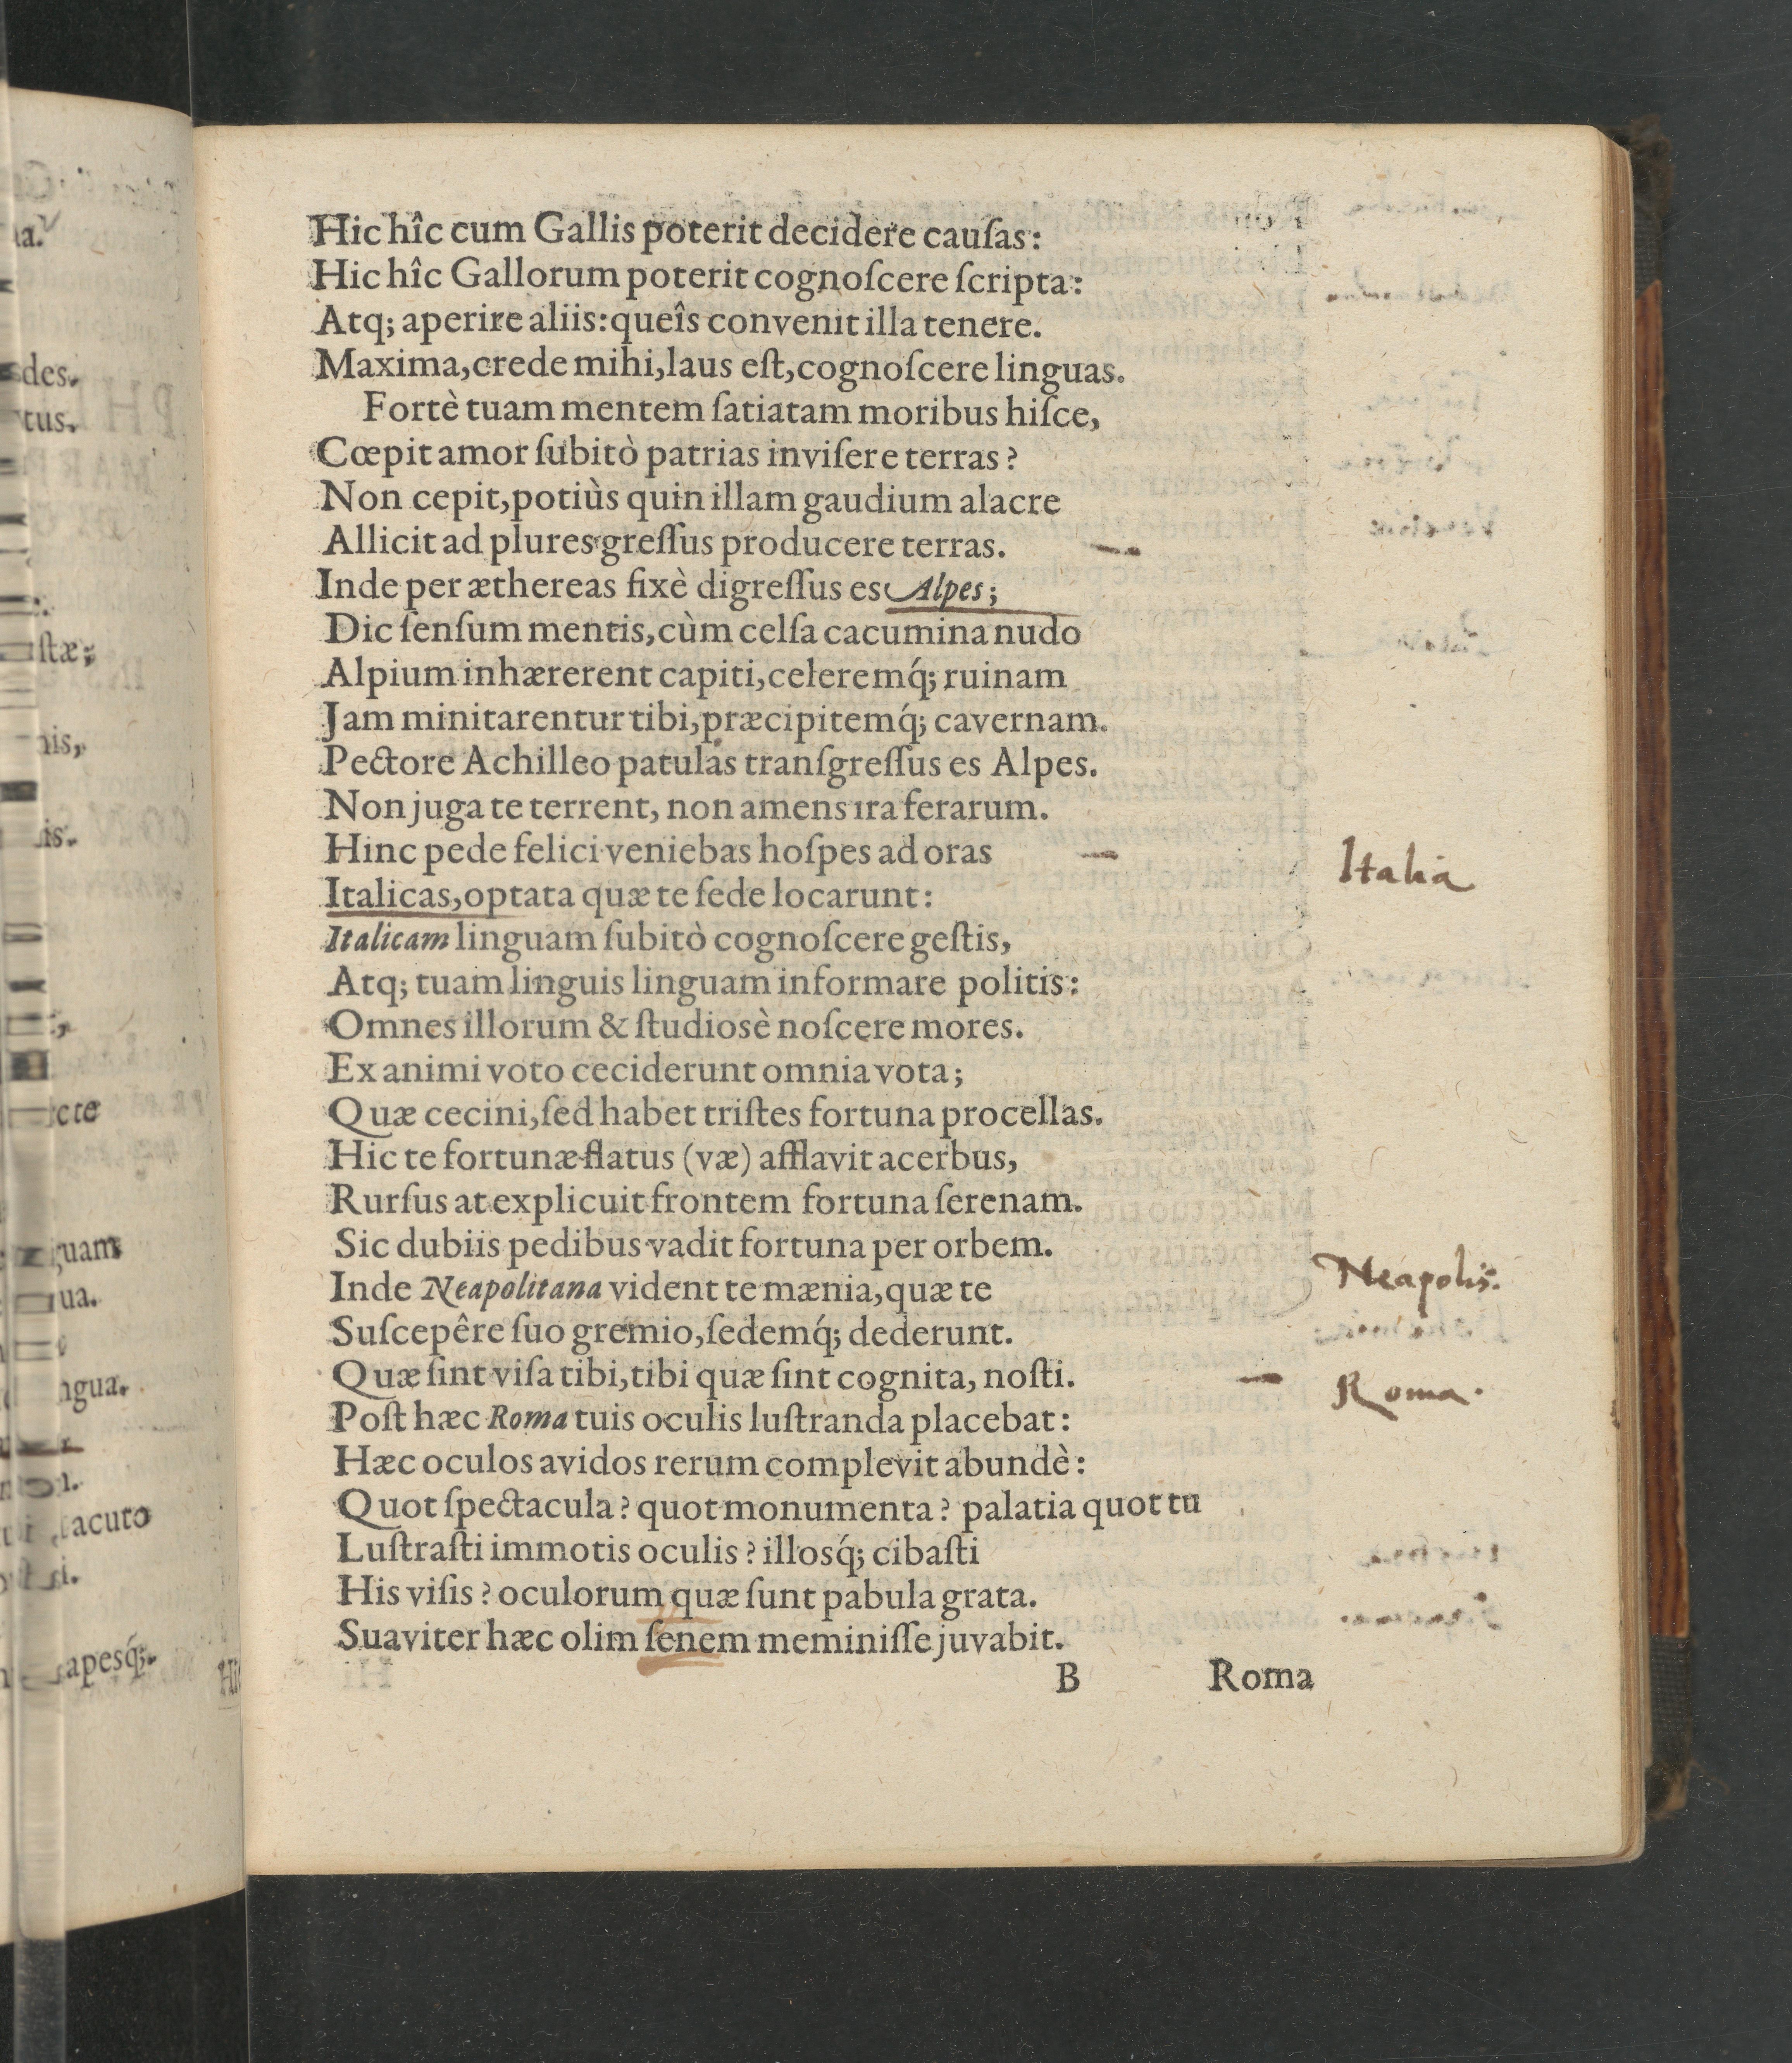 Hic hîc cum Gallis poterit decidere cauſas:
Hic hîc Gallorum poterit cognoſcere ſcripta:
Atq; aperire aliis: queîs convenit illa tenere.
Maxima, crede mihi, laus eſt, cognoſcere linguas.
Fortè tuam mentem ſatiatam moribus hiſce,
Cœpit amor ſubitò patrias inviſere terras?
Non cepit, potiùs quin illam gaudium alacre
Allicit ad plures greſſus producere terras.
Inde per æthereas fixè digreſſus es Alpes;
Dic ſenſum mentis, cùm celſa cacumina nudo
Alpium inhærerent capiti, celeremq́; ruinam
Jam minitarentur tibi, præcipitemq́; cavernam.
Pectore Achilleo patulas tranſgreſſus es Alpes.
Non juga te terrent, non amens ira ferarum.
Hinc pede felici veniebas hoſpes ad oras
Italia
Italicas, optata quæ te ſede locarunt:
Italicam linguam ſubitò cognoſcere geſtis,
Atq; tuam linguis linguam informare politis:
Omnes illorum & ſtudiosè noſcere mores.
Ex animi voto ceciderunt omnia vota;
Quæ cecini, ſed habet triſtes fortuna procellas.
Hic te fortunæ flatus (væ) afflavit acerbus,
Rurſus at explicuit frontem fortuna ſerenam.
Sic dubiis pedibus vadit fortuna per orbem.
Inde Neapolitana vident te mænia, quæ te
Neapolis.
Suſcepêre ſuo gremio, ſedemq́; dederunt.
Quæ ſint viſa tibi, tibi quæ ſint cognita, noſti.
Roma.
Poſt hæc Roma tuis oculis luſtranda placebat:
Hæc oculos avidos rerum complevit abundè:
Quot ſpectacula? quot monumenta? palatia quot tu
Luſtraſti immotis oculis? illosq́; cibaſti
His viſis? oculorum quæ ſunt pabula grata.
Suaviter hæc olim ſenem meminiſſe juvabit.
B Roma